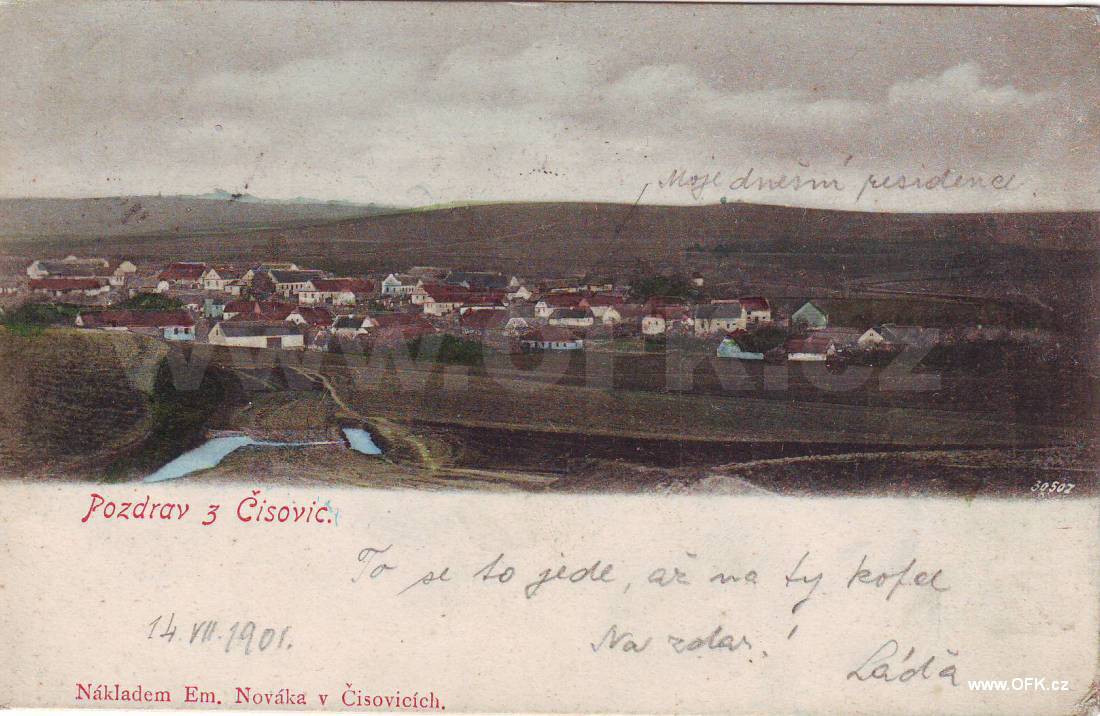 Moje dnešní residence
www.OFK.cz
30507
Pozdrav z Čisovic.
To se to jede, až na ty kofel
14.VII.1901.
Na zdar!
Láďa
www.OFK.cz
Nákladem Em. Nováka v Čisovicích.